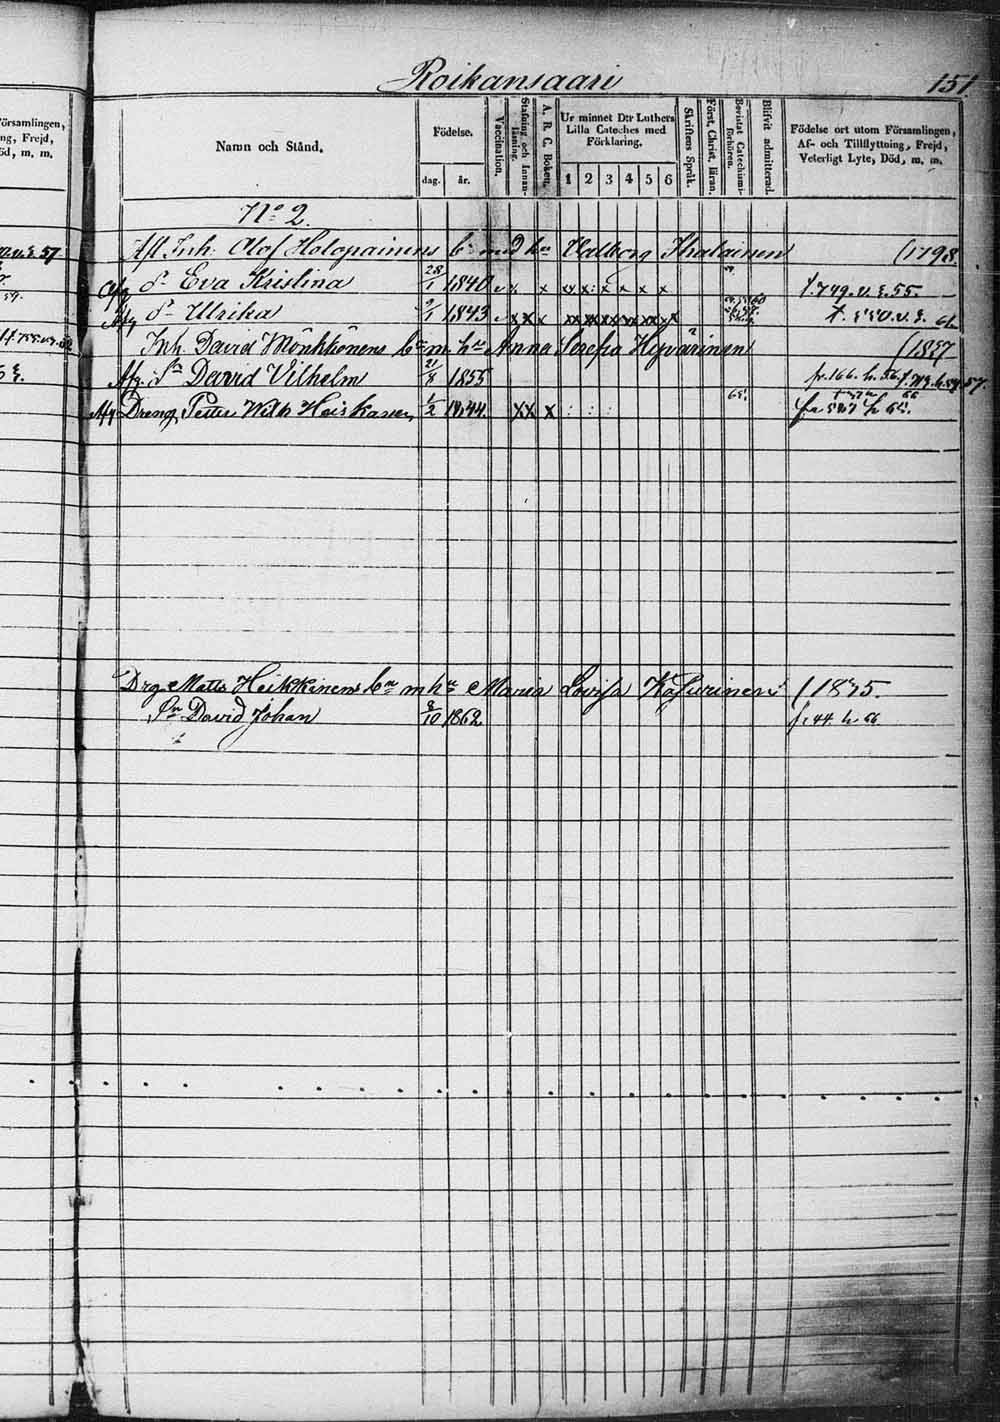 Roikansaari 151
örsamlingen,
ng, Frejd,
öd, m. m.
Namn och Stånd.
Födelse.
dag. år.
Vaccination.
Stafning och Innanläsning.
A. B. C. Boken.
Ur minnet D:r Luthers
Lilla Cateches med
Förklaring.
1 2 3 4 5 6
Skriftens Språk.
Först. Christ. läran.
Bevistat Catechismiförhören.
Blifvit admitterad.
Födelse ort utom Församlingen,
Af- och Tillflyttning, Frejd,
Veterligt Lyte, Död, m. m.
No 2.
Afl Inh. Olof Holopainens bn med hn Valborg Ihalainen (1798.
Afg dr Eva Kristina 28/1 1840 x x x x x x f. 749. v. s. 55.
Afg dr Ulrika 9/1 1843 x x x xx xx xx xx xx x f. 550. v. s. 61.
Inh. David Mönkkönens bn m hn Anna Serefia Hyvärinen (1857
Afg. Sn David Vilhelm 21/8 1855 fr. 166. h. 56.
Afg Dreng Petter Wilh Heiskanen 1/2 1844. x x x : : : 65. fr 587 h 65.
Drg Matts Heikkinens bn m hn Maria Lovisa Kasurinen (1835.
Sn David Johan 8/10 1862. fr 44. h 66.